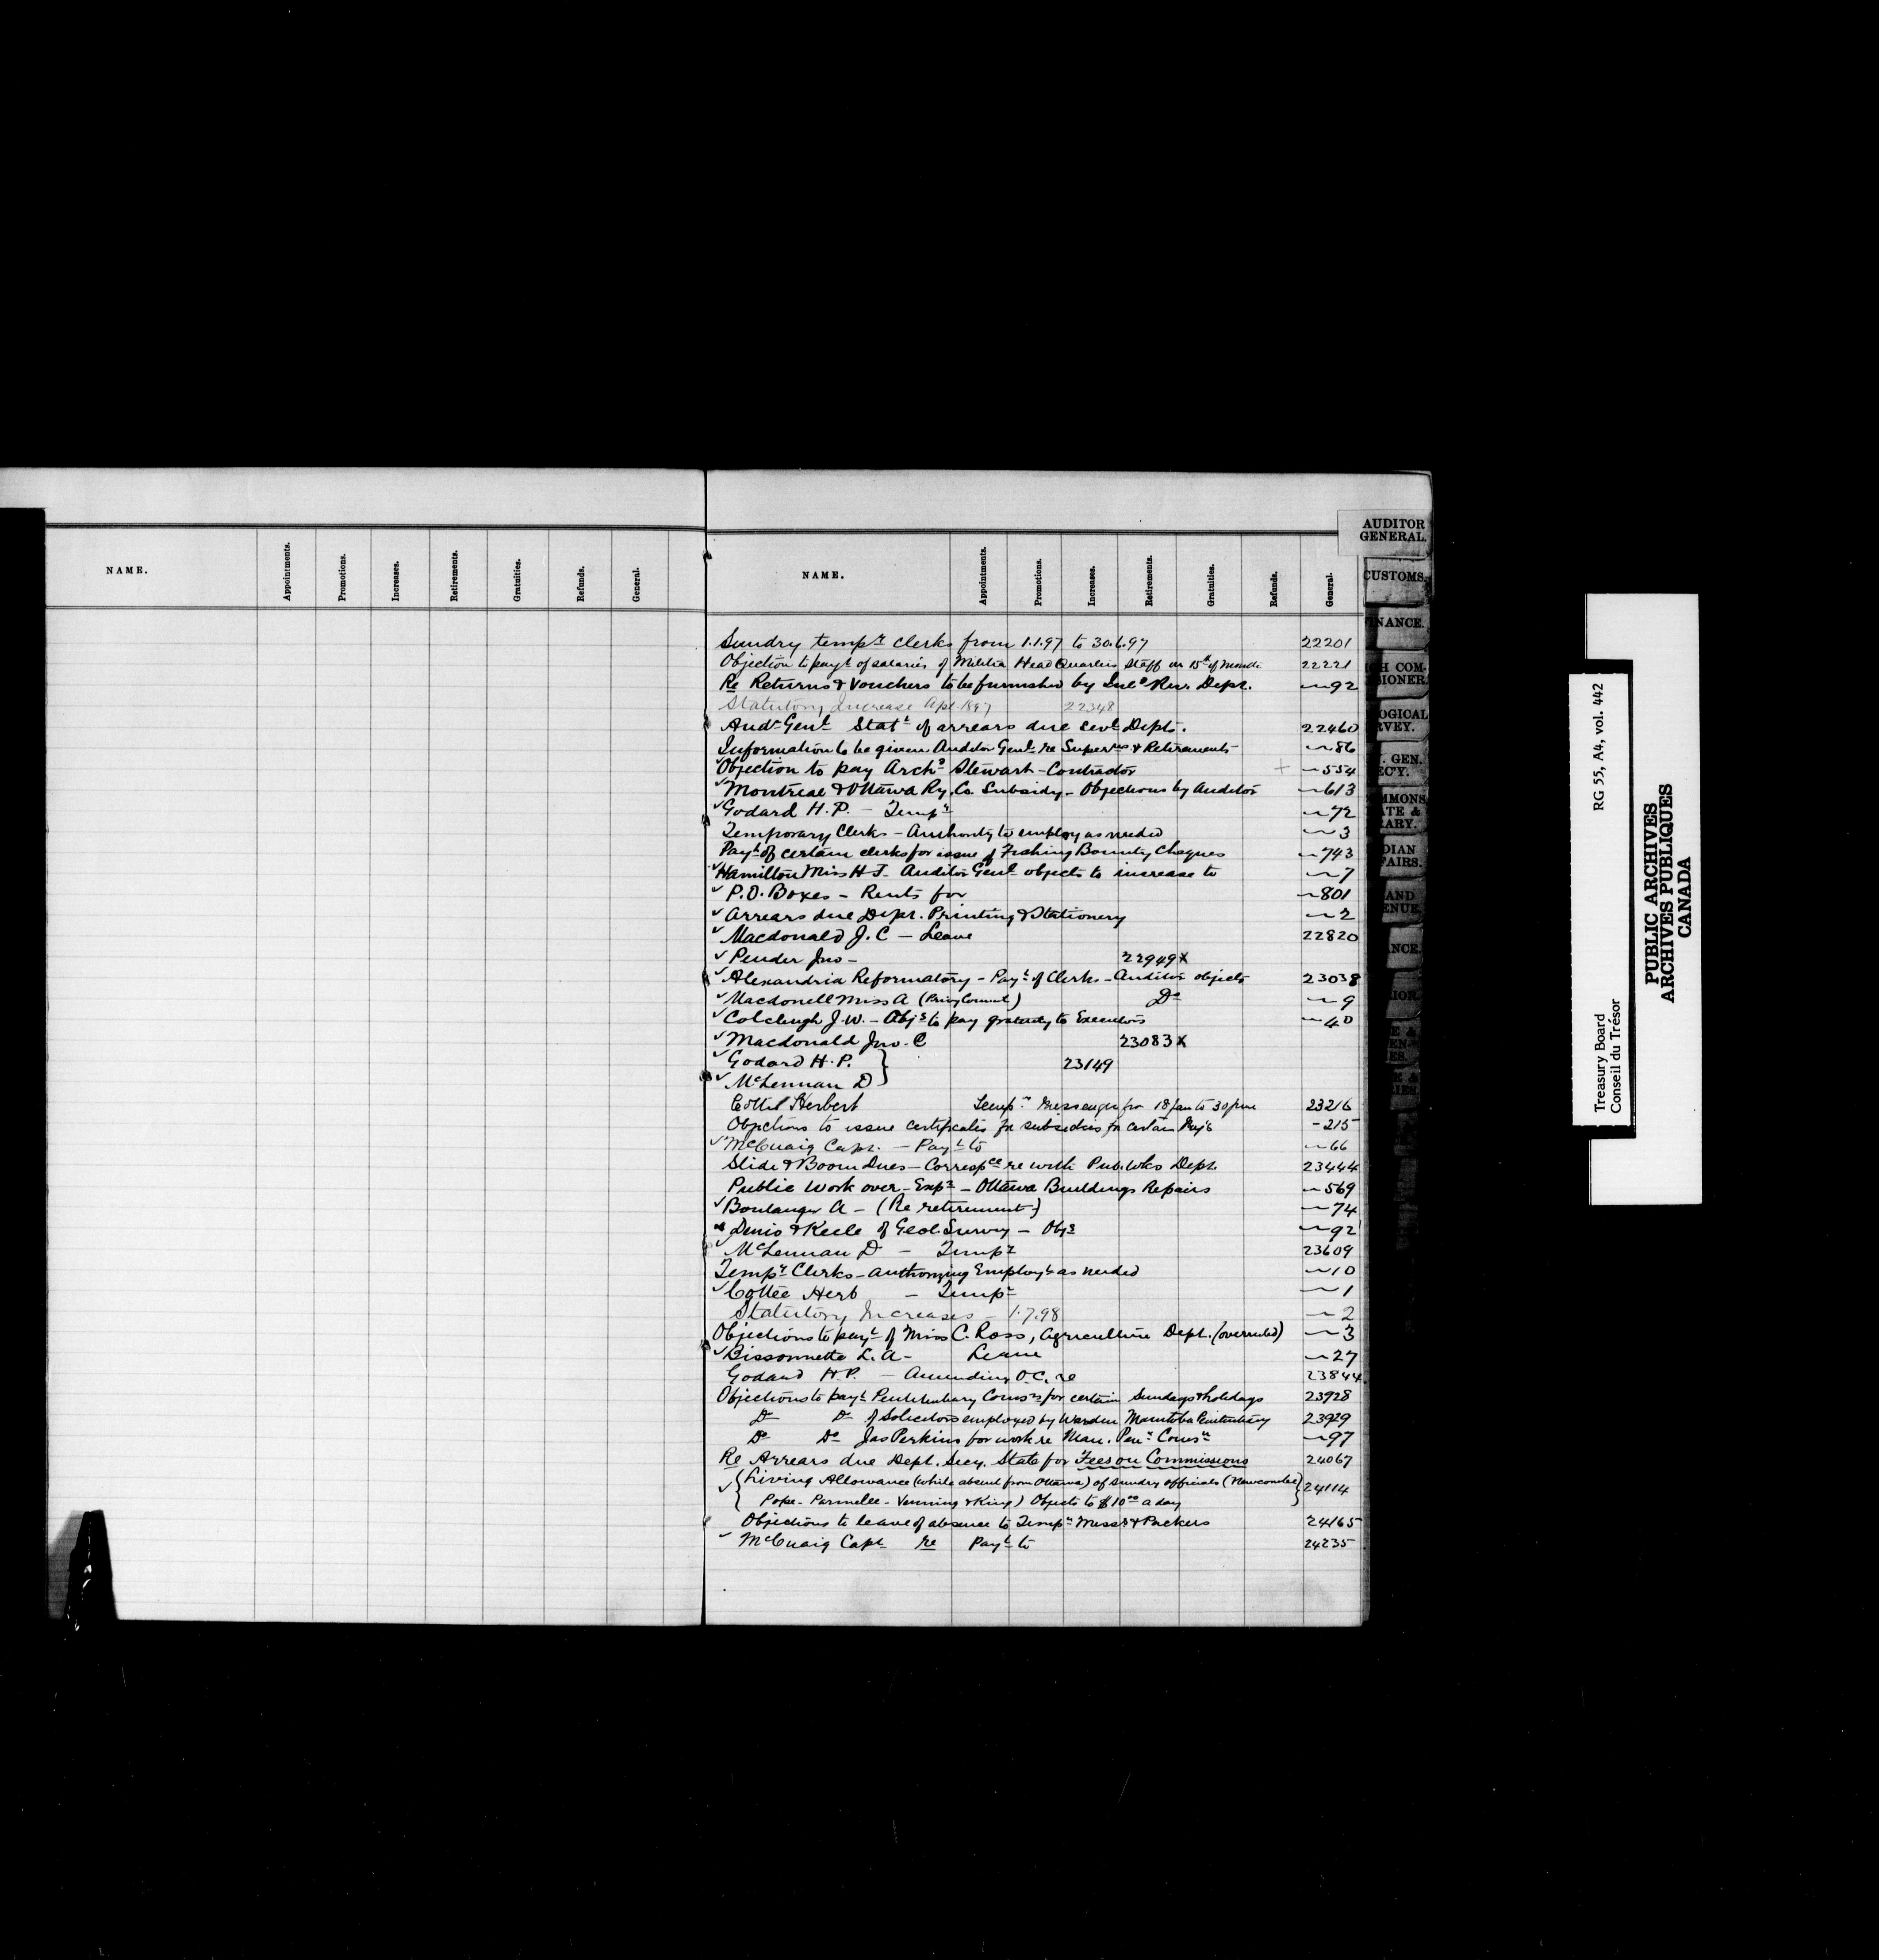 NAME. Appointments. Promotions. Increases. Retirements. Gratuities. Refunds. General.
NAME. Appointments. Promotions. Increases. Retirements. Gratuities. Refunds. General.
Sundry tempy clerks from 1.1.97 to 30.6.97 22201
Objection to payt of salaries of Militia Head Quarters Staff on 15th of month 22221
Re Returns & Vouchers to be furnished by Inld Rev. Dept. ~92
Statutory Increase Apl. 1897 22348
Audr Genl Statt of arrears due sevl Depts. 22460
Information to be given Auditor Genl re Superns & Retirements ~86
✓ Objection to pay Archd Stewart - Contractor + ~554
✓ Montreal & Ottawa Ry. Co. Subsidy - Objections by Auditor ~613
✓ Godard H.P. - Tempy ~72
Temporary Clerks - Authority to employ as needed ~3
Payt of certain clerks for issue of Fishing Bounty Cheques ~743
✓ Hamilton Miss H J - Auditor Genl objects to increase to ~7
✓ P.O. Boxes - Rents for ~801
✓ Arrears due Dept. Printing & Stationery ~2
✓ Macdonald J. C - Leave 22820
✓ Pender Jno - 22949 X
✓ Alexandria Reformatory - Payt of Clerks - Auditor objects 23038
✓ Macdonell Miss A (Privy Council) Do ~9
✓ Colcleugh J. W. - Objs to pay gratuity to Executors ~40
✓ Macdonald Jno. C 23083 X
✓ Godard H. P. } 23149
✓ McLennan D }
Herbert Tempy Messenger from 18 Jan to 30 June 23216
Objections to issue certificates for subsidies for certain Rys -215
✓ McCuaig Capt. - Payt to ~66
Slide & Boom Dues - Correspce re with Pub. Wks Dept. 23444
Public Work over-Expe - Ottawa Buildings Repairs ~569
✓ Boulanger A - (Re retirement) ~74
Denis & Keele of Geol. Survey - Objs ~92
✓ McLennan D - Tempy 23609
Tempy Clerks - Authorizing Employt as needed ~10
✓ Cottee Herb - Tempy ~1
Statutory Increases - 1.7.98 ~2
Objections to payt of Miss C. Ross, Agriculture Dept. (overruled) ~3
✓ Bissonnette L. A - Leave ~27
Godard H.P. - Amending O.C. re 23844
Objections to payt Penitentiary Comrs for certain Sundays & holidays 23928
Do Do of Solicitors employed by Warden Manitoba Penitentiary 23929
Do Do Jas Perkins for work re Man. Peny ~97
Re Arrears due Dept. Secy. State for Fees on Commissions 24067
✓ { Living Allowance (while absent from Ottawa) of sundry officials (Newcombe } 24114
Pope - Parmelee - Venning & King) Objects to $10.00 a day
Objections to leave of absence to Tempy Messrs & Packers 24165
✓ McCuaig Capt re Payt to 24235
AUDITOR
GENERAL.
CUSTOMS.
INANCE.
GH COM-
SIONER.
OGICAL
RVEY.
. GEN.
EC'Y.
MMONS
ATE &
RARY.
DIAN
FAIRS.
AND
ENUE.
NCE.
IOR.
Treasury Board
Conseil du Trésor
RG 55, A4, vol. 442
PUBLIC ARCHIVES
ARCHIVES PUBLIQUES
CANADA